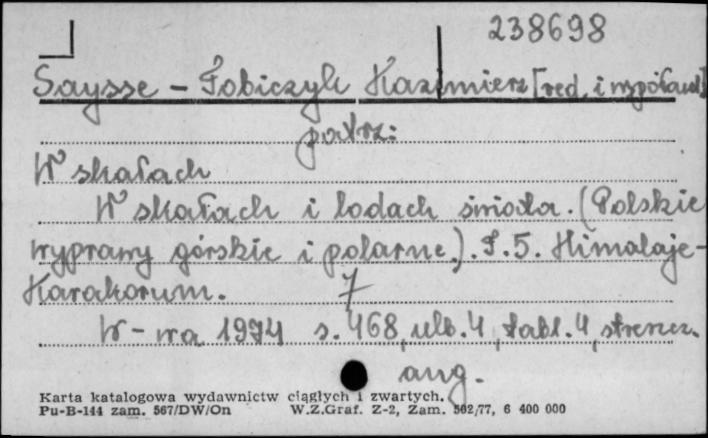 238698
Saysse-Tobiczyk Kazimierz [red. i współaut.]
patrz:
W skałach
W skałach i lodach świata. (Polskie
wyprawy górskie i polarne.). T.5. Himalaje-
Karakorum. 7
W-wa 1974 s. 468, ulb. 4, tabl. 4, streszcz.
ang.
Karta katalogowa wydawnictw ciągłych i zwartych.
Pu-B-144 zam. 567/DW/On W.Z.Graf. Z-2, Zam. 502/77, 6 400 000